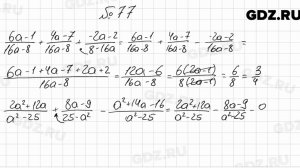 №77
GDZ.RU
(6a-1)/(16a-8) + (4a-7)/(16a-8) + (-2a-2)/(8-16a) = (6a-1)/(16a-8) + (4a-7)/(16a-8) - (-2a-2)/(16a-8) =
(6a-1+4a-7+2a+2)/(16a-8) = (12a-6)/(16a-8) = 6(2a-1)/8(2a-1) = 6/8 = 3/4
(2a²+12a)/(a²-25) + (8a-9)/(25-a²) - (a²+14a-16)/(a²-25) = (2a²+12a)/(a²-25) - (8a-9)/(a²-25) - 0
GDZ.RU